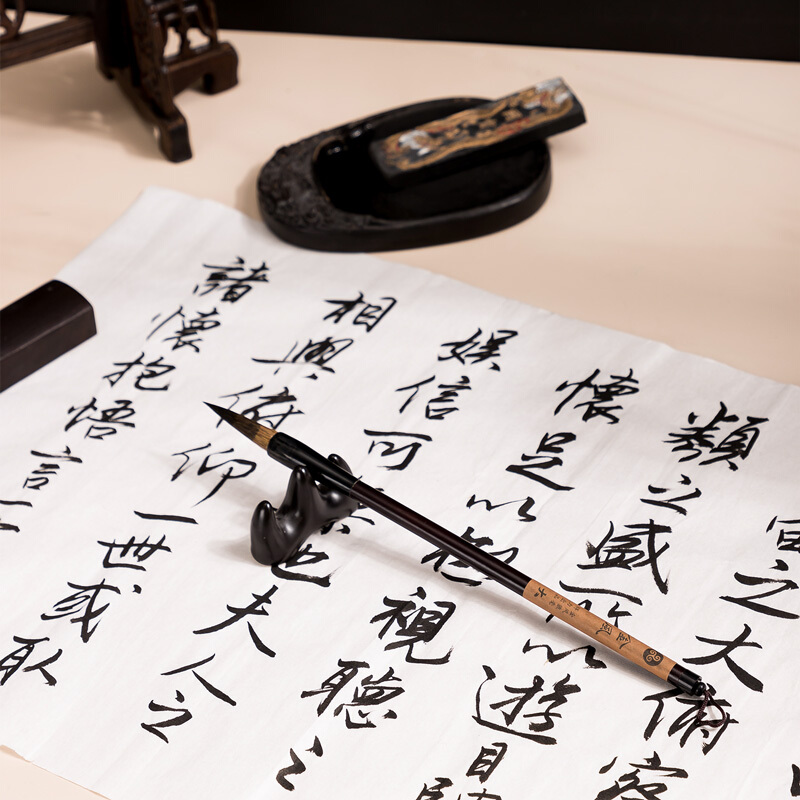 宙之大俯察
類之盛所以遊目騁
懷足以極視聽之
娛信可樂也夫人之
相與俯仰一世或取
諸懷抱悟言一